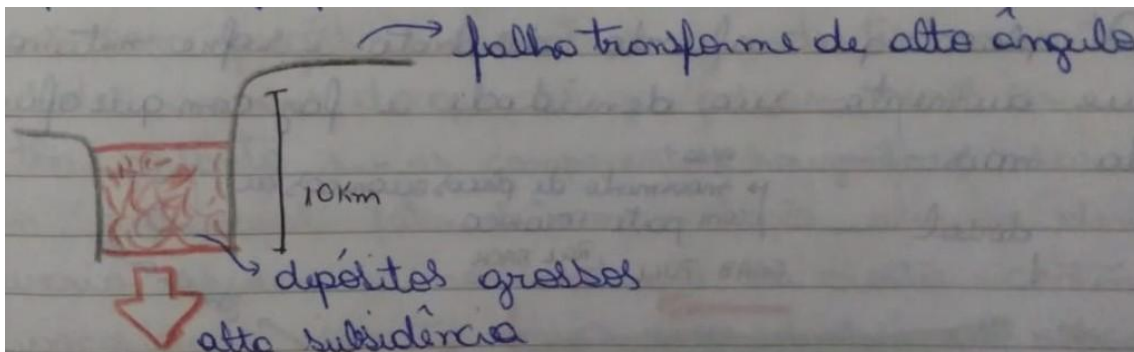 falha transforme de alto ângulo
10Km
depósitos grossos
alta subsidência